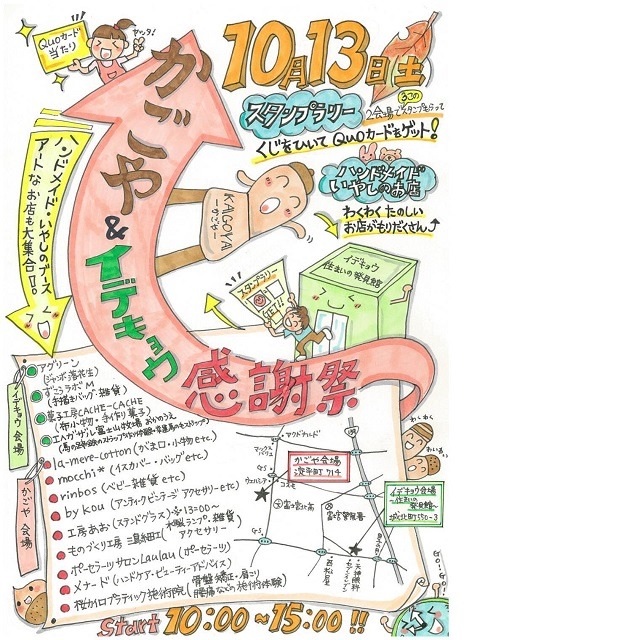 Quoカード
当たり
ヤッタ!
10月13日(土)
スタンプラリー
2会場でスタンプをもらって
くじをひいてQuoカードをゲット!
ハンドメイド
いやしのお店
わくわく たのしい
お店がもりだくさん
かごや&イデキョウ
感謝祭
ハンドメイド・いやしのブース
アートなお店も大集合!!
KAGOYA
ーかごやー
イデキョウ
住まいの発見館
スタンプラリー
イデキョウ会場
アグリーン
(ジャンボ落花生)
ずこうラボM
(手描きバッグ・雑貨)
菓子工房CACHE-CACHE
(布小物・手作り菓子)
かごや会場
la-mere-cotton (がま口・小物etc)
mocchi* (イスカバー・バッグetc)
rinbos (ベビー雑貨etc)
by kou (アンティークビンテージ アクセサリーetc)
工房あお (ステンドグラス) ※13:00~
ものづくり工房
木製ランプ、雑貨
アクセサリー
ポーセラーツサロンLaulau (ポーセラーツ)
メナード (ハンドケア・ビューティーアドバイス)
桜カイロプラクティック施術院
骨盤矯正・肩こり
腰痛などの施術体験)
マクドナルド
マックスバリュ
かごや会場
淀平町714
GS
ウェルシア
コスモ
富士宮北高
富士宮警察署
GS
西松屋
天神眼科
セブンイレブン
イデキョウ会場
~住まいの
発見館~
城北町550-3
わくわく
GO-GO!
Start 10:00~15:00!!